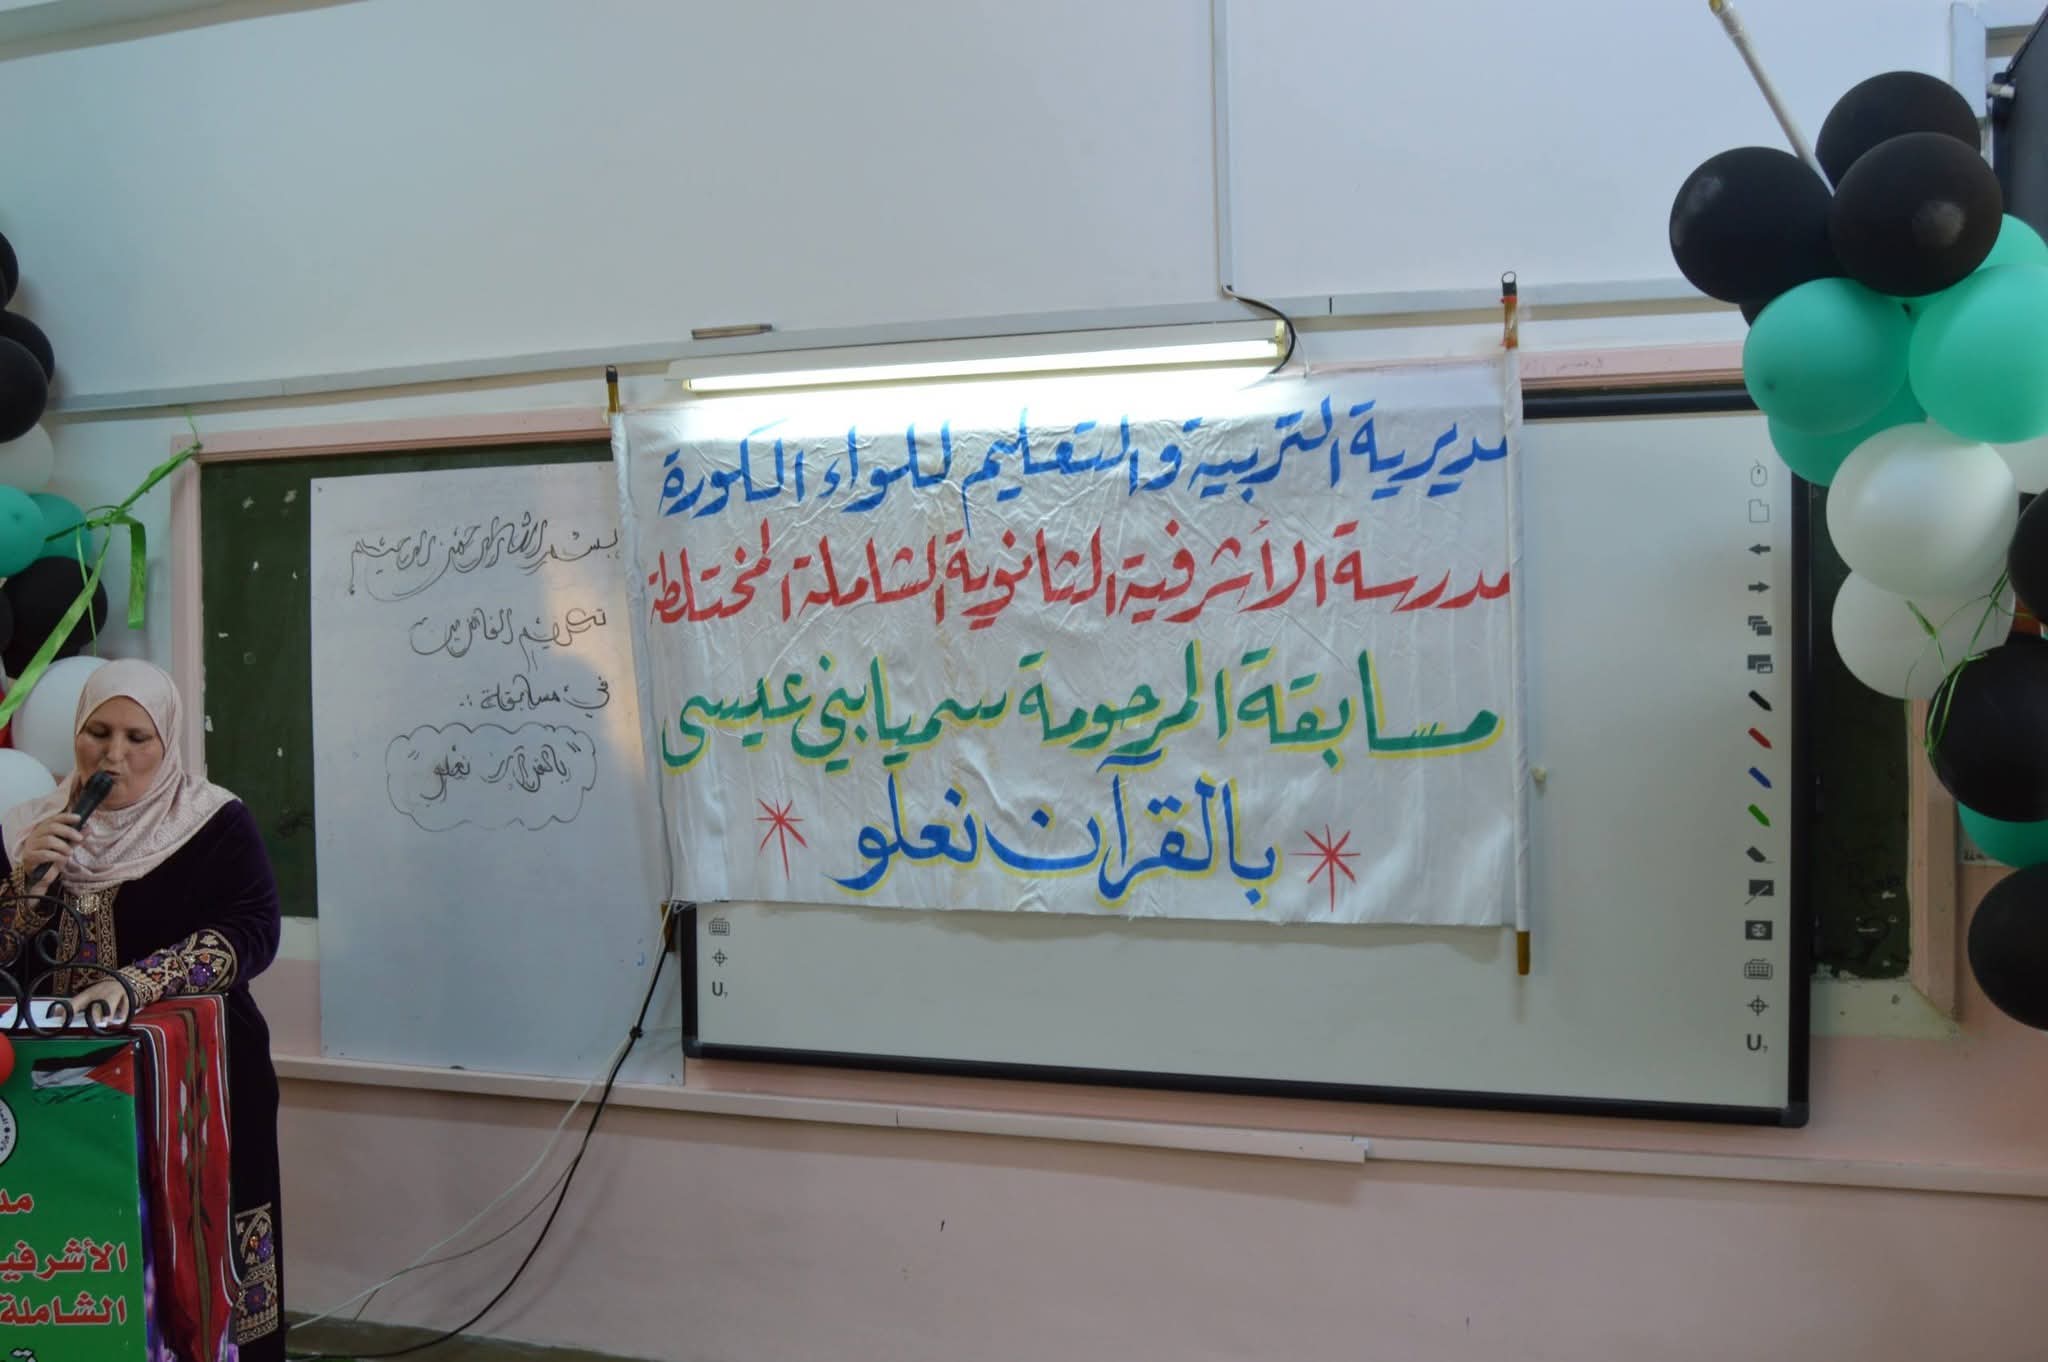 مديرية التربية والتعليم للواء الكورة
مدرسة الأشرفية الثانوية الشاملة المختلطة
مسابقة المرحومة سميا بني عيسى
بالقرآن نعلو
بسم الله الرحمن الرحيم
تكريم الفائزين
في مسابقة :.
"بالقرآن نعلو"
U,
U,
مد
الأشرفي
الشاملة